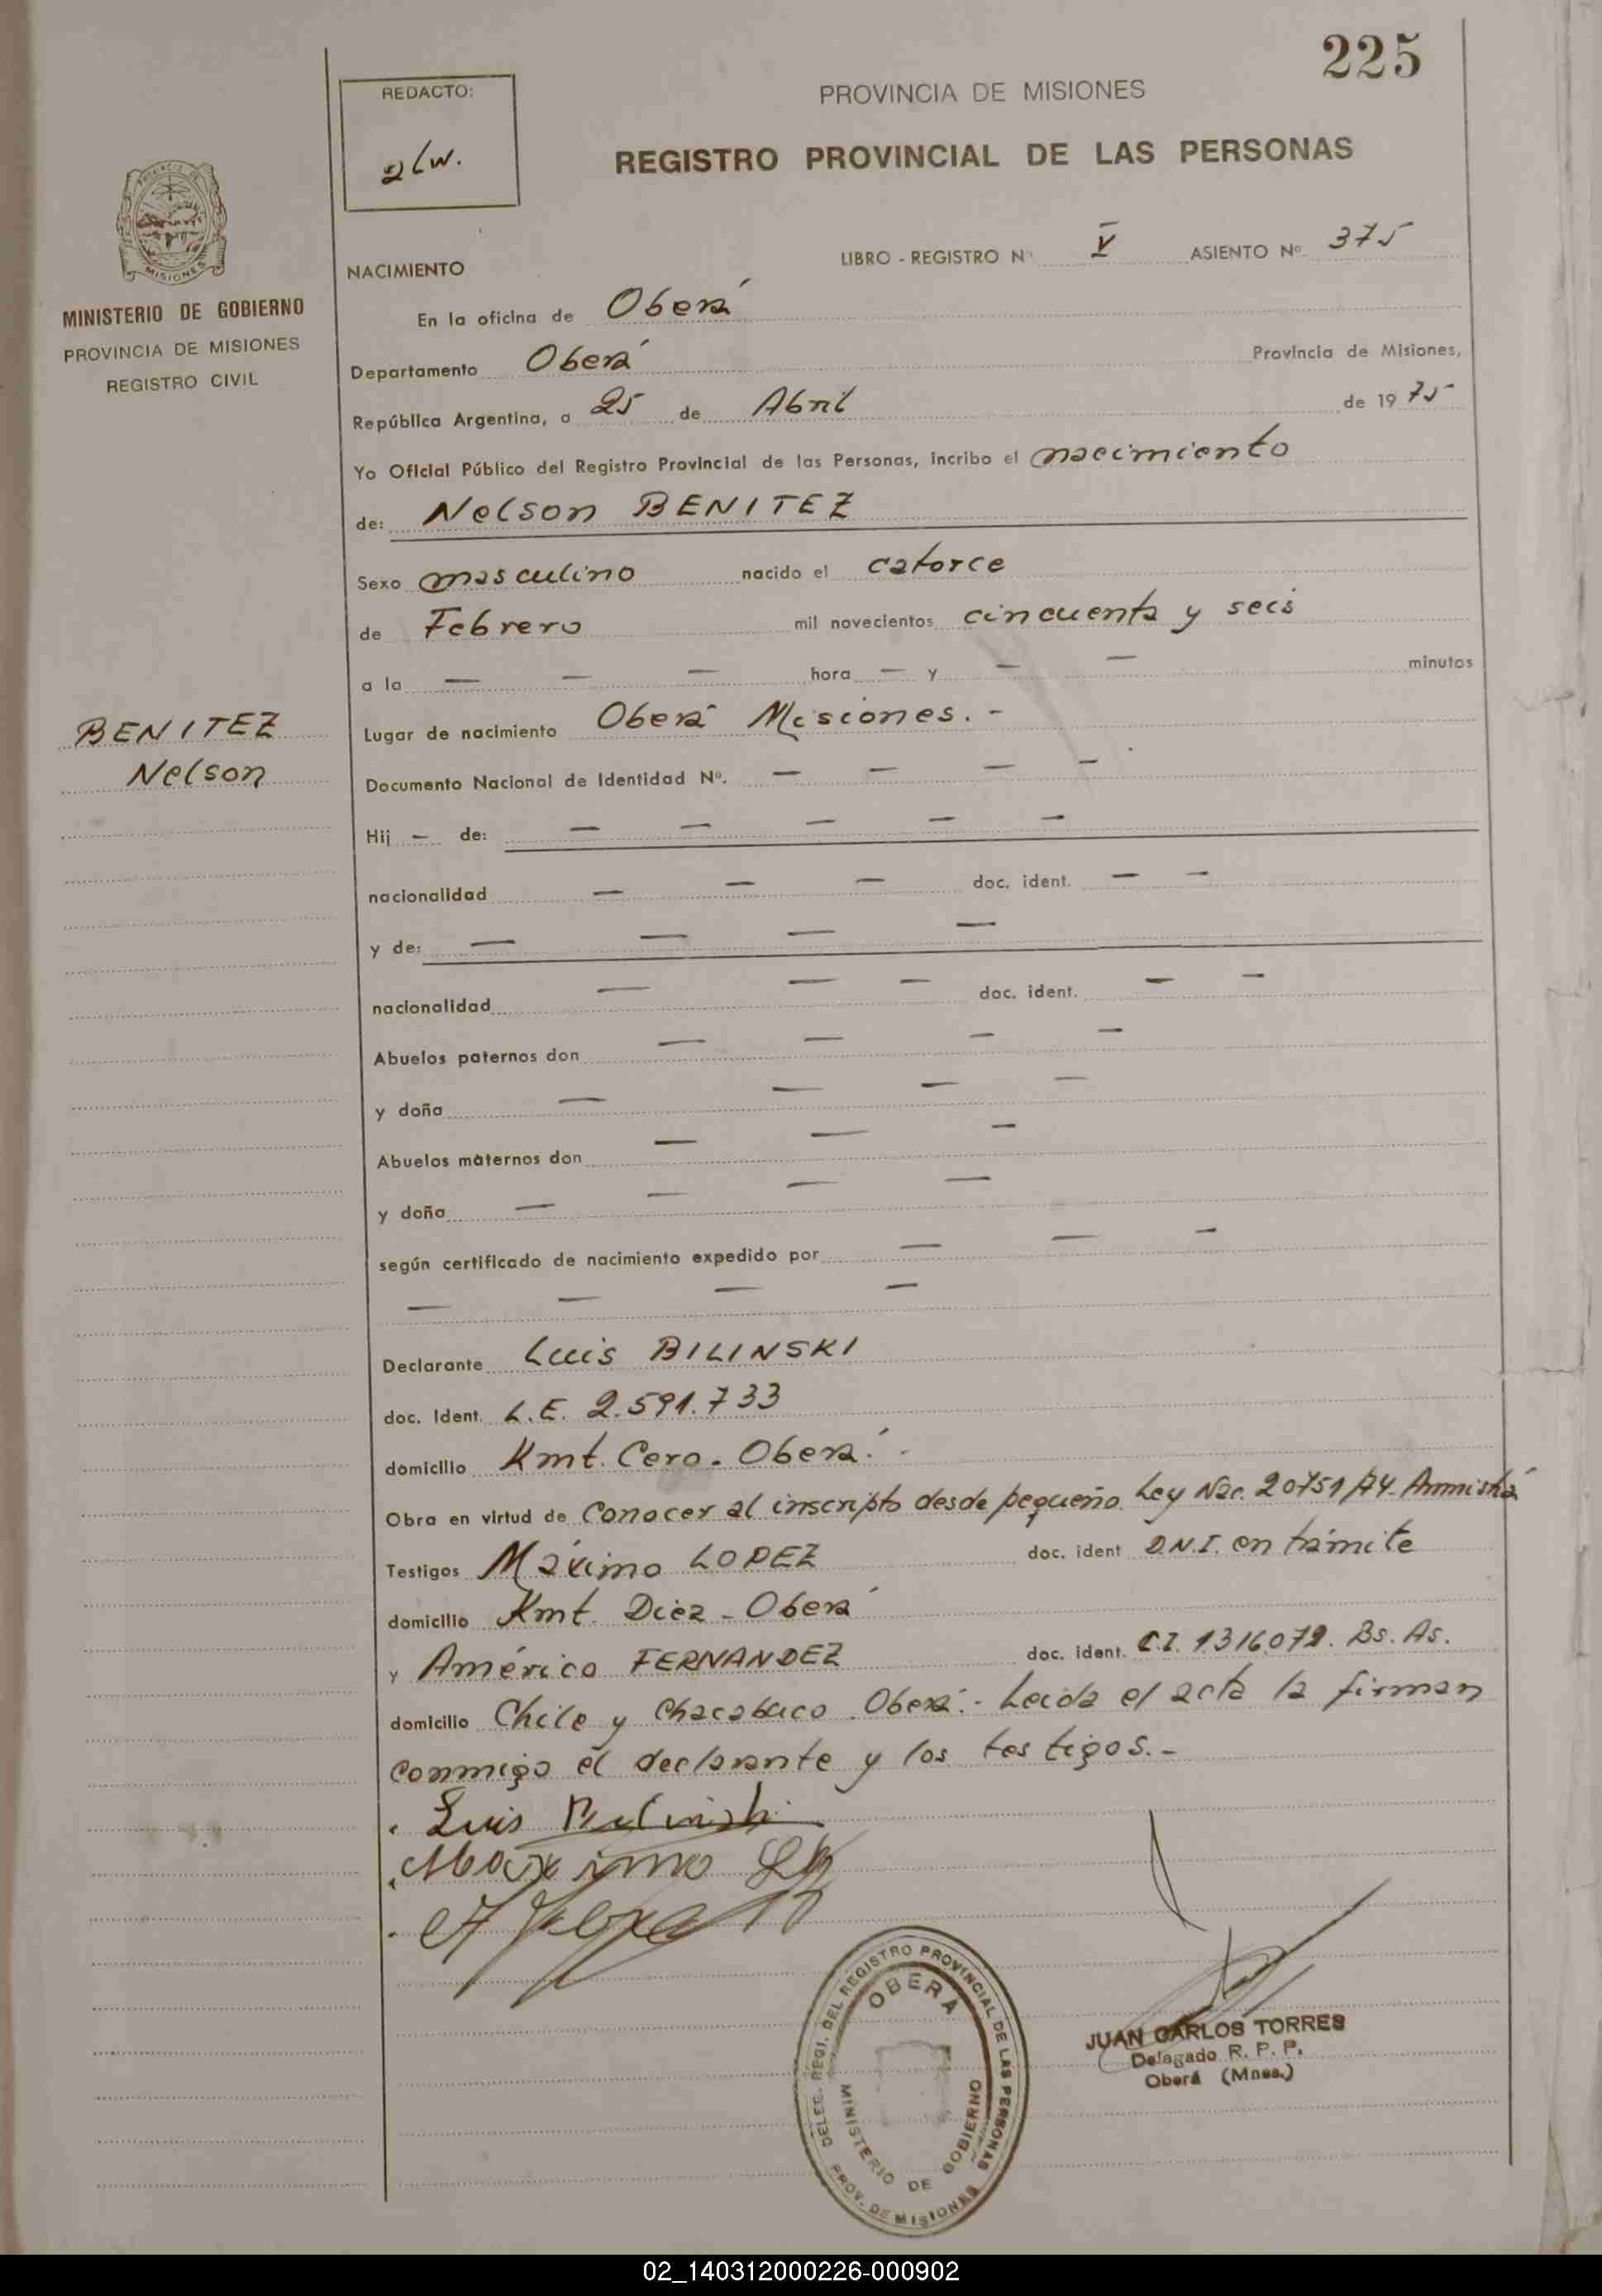 225
REDACTO:
PROVINCIA DE MISIONES
REGISTRO PROVINCIAL DE LAS PERSONAS
LIBRO - REGISTRO Nº V ASIENTO Nº 375
MISIONES
MINISTERIO DE GOBIERNO
PROVINCIA DE MISIONES
REGISTRO CIVIL
NACIMIENTO
En la oficina de Oberá
Departamento Oberá Provincia de Misiones,
República Argentina, a 25 de Abril de 1975
Yo Oficial Público del Registro Provincial de las Personas, incribo el nacimiento
de: Nelson BENITEZ
Sexo masculino nacido el catorce
de Febrero mil novecientos cincuenta y seis
a la — — — hora — y — — minutos
BENITEZ
Nelson
Lugar de nacimiento Oberá Misiones. -
Documento Nacional de Identidad Nº. — — — —
Hij — de: — — — — —
nacionalidad — — — doc. ident. — —
y de: — — — —
nacionalidad — — — doc. ident. — —
Abuelos paternos don — — — —
y doña — — — —
Abuelos maternos don — — —
y doña — — — —
según certificado de nacimiento expedido por — — —
— — — —
Declarante Luis BILINSKI
doc. Ident. L.E. 2.591.733
domicilio Kmt. Cero. Oberá. -
Obra en virtud de Conocer al inscripto desde pequeño. Ley Nac. 20751/74. Amnistía
Testigos Máximo LOPEZ doc. ident D.N.I. en trámite
domicilio Kmt. Diez - Oberá
y Américo FERNANDEZ doc. ident. C.I. 1316.079. Bs. As.
domicilio Chile y Chacabuco. Oberá. - Leida el acta la firman
conmigo el declarante y los testigos. -
Luis
Maximo
DELEG. REGI. DEL REGISTRO PROVINCIAL DE LAS PERSONAS
OBERA
MINISTERIO DE GOBIERNO
PROV. DE MISIONES
JUAN CARLOS TORRES
Delegado R. P. P.
Oberá (Mnes.)
02_140312000226-000902